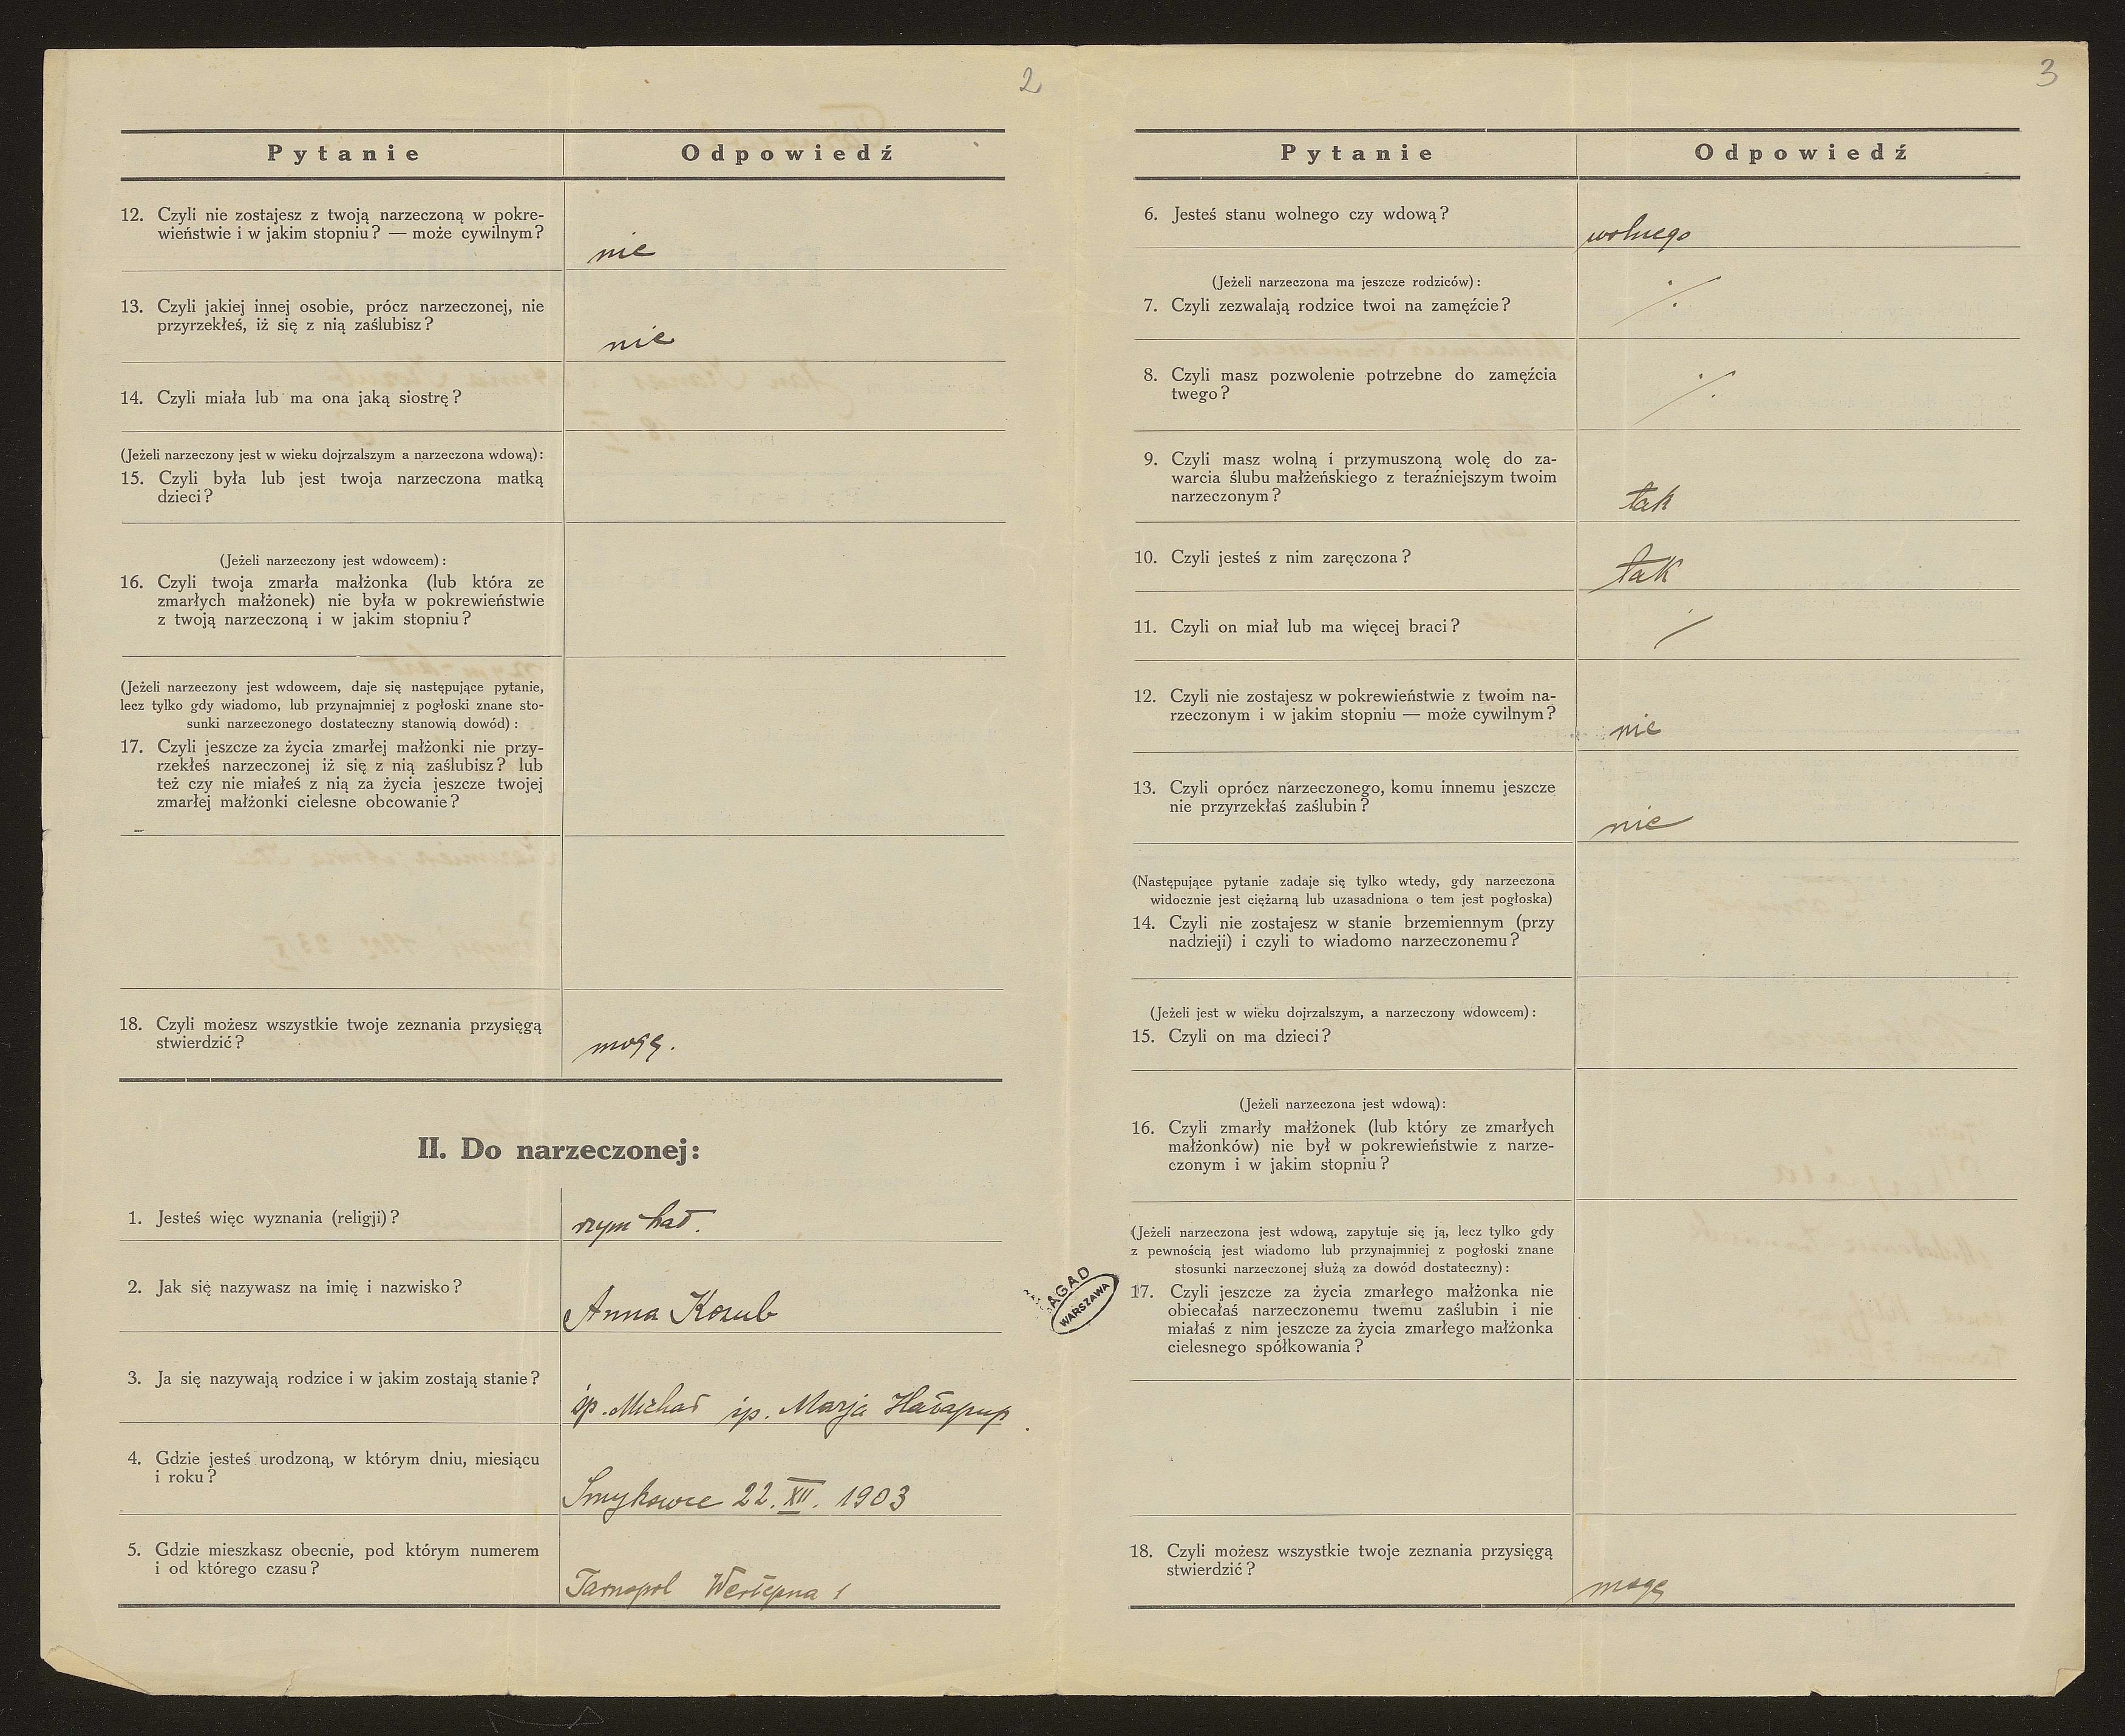 2
Pytanie
Odpowiedź
12. Czyli nie zostajesz z twoją narzeczoną w pokre-
wieństwie i w jakim stopniu? — może cywilnym?
nie
13. Czyli jakiej innej osobie, prócz narzeczonej, nie
przyrzekłeś, iż się z nią zaślubisz?
nie
14. Czyli miała lub ma ona jaką siostrę?
(Jeżeli narzeczony jest w wieku dojrzalszym a narzeczona wdową):
15. Czyli była lub jest twoja narzeczona matką
dzieci?
(Jeżeli narzeczony jest wdowcem):
16. Czyli twoja zmarła małżonka (lub która ze
zmarłych małżonek) nie była w pokrewieństwie
z twoją narzeczoną i w jakim stopniu?
(Jeżeli narzeczony jest wdowcem, daje się następujące pytanie,
lecz tylko gdy wiadomo, lub przynajmniej z pogłoski znane sto-
sunki narzeczonego dostateczny stanowią dowód):
17. Czyli jeszcze za życia zmarłej małżonki nie przy-
rzekłeś narzeczonej iż się z nią zaślubisz? lub
też czy nie miałeś z nią za życia jeszcze twojej
zmarłej małżonki cielesne obcowanie?
18. Czyli możesz wszystkie twoje zeznania przysięgą
stwierdzić?
mogę.
II. Do narzeczonej:
1. Jesteś więc wyznania (religji)?
rzym kat.
2. Jak się nazywasz na imię i nazwisko?
Anna Kozub
3. Ja się nazywają rodzice i w jakim zostają stanie?
śp. Michał śp. Marja
4. Gdzie jesteś urodzoną, w którym dniu, miesiącu
i roku?
Smykowce 22. XII. 1903
5. Gdzie mieszkasz obecnie, pod którym numerem
i od którego czasu?
Tarnopol
AGAD
WARSZAWA
3
Pytanie
Odpowiedź
6. Jesteś stanu wolnego czy wdową?
wolnego
(Jeżeli narzeczona ma jeszcze rodziców):
7. Czyli zezwalają rodzice twoi na zamęźcie?
8. Czyli masz pozwolenie potrzebne do zamęźcia
twego?
9. Czyli masz wolną i przymuszoną wolę do za-
warcia ślubu małżeńskiego z teraźniejszym twoim
narzeczonym?
tak
10. Czyli jesteś z nim zaręczona?
tak
11. Czyli on miał lub ma więcej braci?
12. Czyli nie zostajesz w pokrewieństwie z twoim na-
rzeczonym i w jakim stopniu — może cywilnym?
nie
13. Czyli oprócz narzeczonego, komu innemu jeszcze
nie przyrzekłaś zaślubin?
nie
(Następujące pytanie zadaje się tylko wtedy, gdy narzeczona
widocznie jest ciężarną lub uzasadniona o tem jest pogłoska)
14. Czyli nie zostajesz w stanie brzemiennym (przy
nadzieji) i czyli to wiadomo narzeczonemu?
(Jeżeli jest w wieku dojrzalszym, a narzeczony wdowcem):
15. Czyli on ma dzieci?
(Jeżeli narzeczona jest wdową):
16. Czyli zmarły małżonek (lub który ze zmarłych
małżonków) nie był w pokrewieństwie z narze-
czonym i w jakim stopniu?
(Jeżeli narzeczona jest wdową, zapytuje się ją, lecz tylko gdy
z pewnością jest wiadomo lub przynajmniej z pogłoski znane
stosunki narzeczonej służą za dowód dostateczny):
17. Czyli jeszcze za życia zmarłego małżonka nie
obiecałaś narzeczonemu twemu zaślubin i nie
miałaś z nim jeszcze za życia zmarłego małżonka
cielesnego spółkowania?
18. Czyli możesz wszystkie twoje zeznania przysięgą
stwierdzić?
mogę